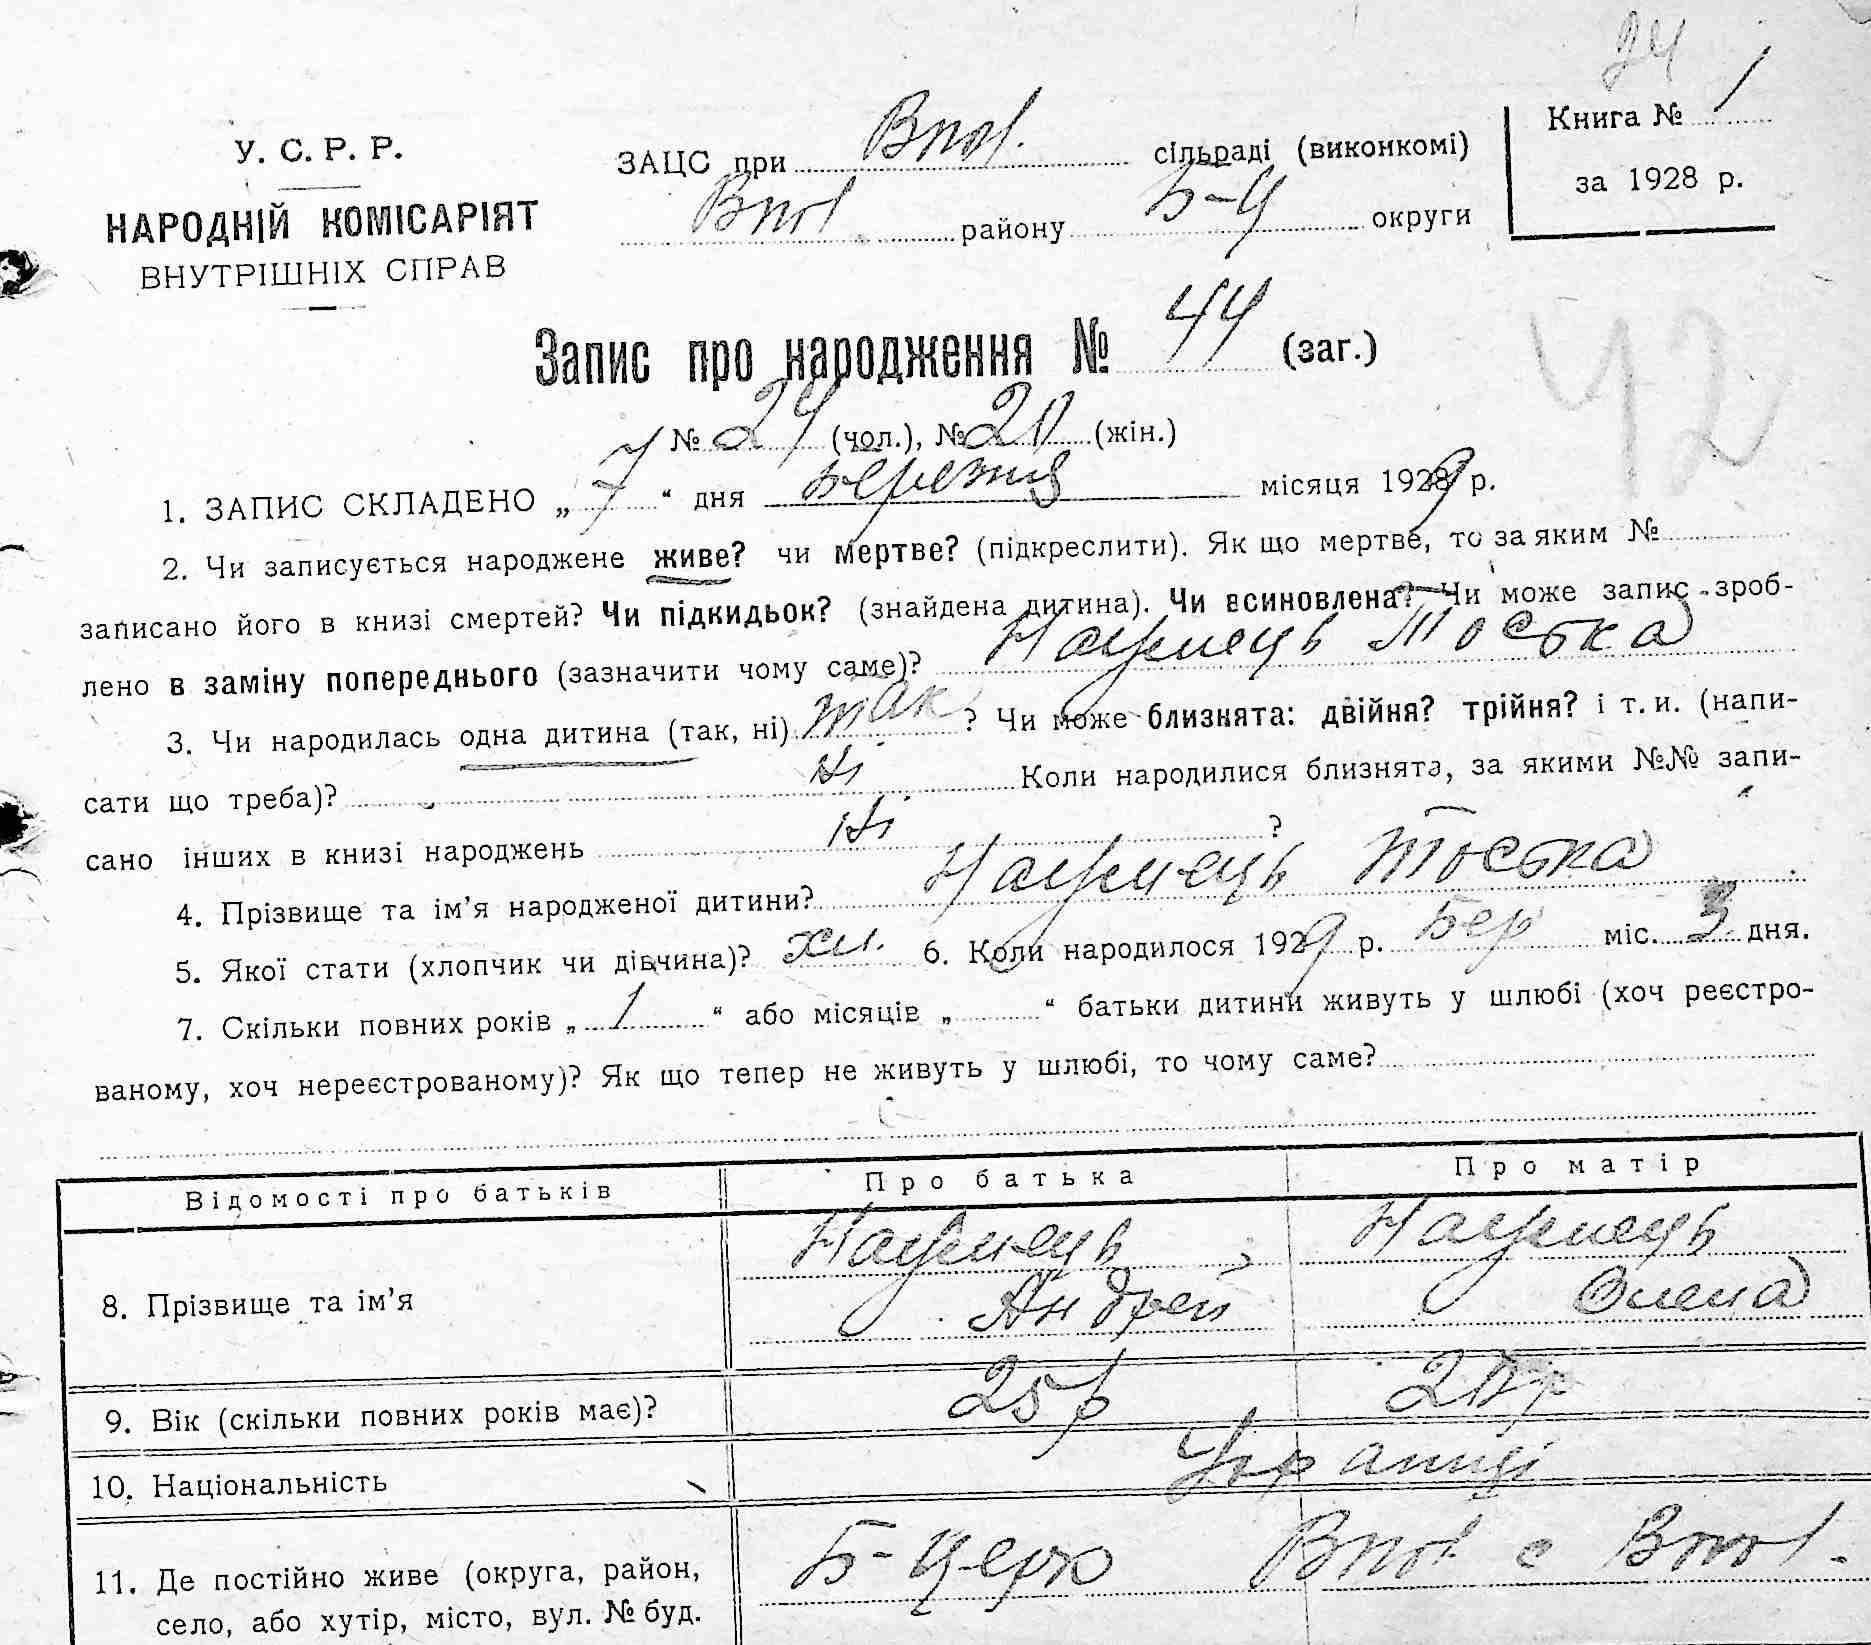 24
У. С. Р. Р.
НАРОДНІЙ КОМІСАРІЯТ
ВНУТРІШНІХ СПРАВ
ЗАЦС при сільраді (виконкомі)
району Б-Ц округи
Книга № 1
за 1928 р.
Запис про народження № 44 (заг.)
42
№ 24 (чол.), № 20 (жін.)
1. ЗАПИС СКЛАДЕНО „ 7 “ дня Березня місяця 1929 р.
2. Чи записується народжене живе? чи мертве? (підкреслити). Як що мертве, то за яким №
записано його в книзі смертей? Чи підкидьок? (знайдена дитина). Чи всиновлена? Чи може запис зроб-
лено в заміну попереднього (зазначити чому саме)?
3. Чи народилась одна дитина (так, ні) так ? Чи може близнята: двійня? трійня? і т. и. (напи-
сати що треба)? Ні Коли народилися близнята, за якими №№ запи-
сано інших в книзі народжень Ні ?
4. Прізвище та ім’я народженої дитини?
5. Якої стати (хлопчик чи дівчина)? хл. 6. Коли народилося 1929 р. Бер міс. 3 дня.
7. Скільки повних років „ 1 “ або місяців „ “ батьки дитини живуть у шлюбі (хоч реєстро-
ваному, хоч нереєстрованому)? Як що тепер не живуть у шлюбі, то чому саме?
Відомості про батьків Про батька Про матір
8. Прізвище та ім’я Андрей Олена
9. Вік (скільки повних років має)? 25 р 20 р
10. Національність Українці
11. Де постійно живе (округа, район,
село, або хутір, місто, вул. № буд. Б-Церк